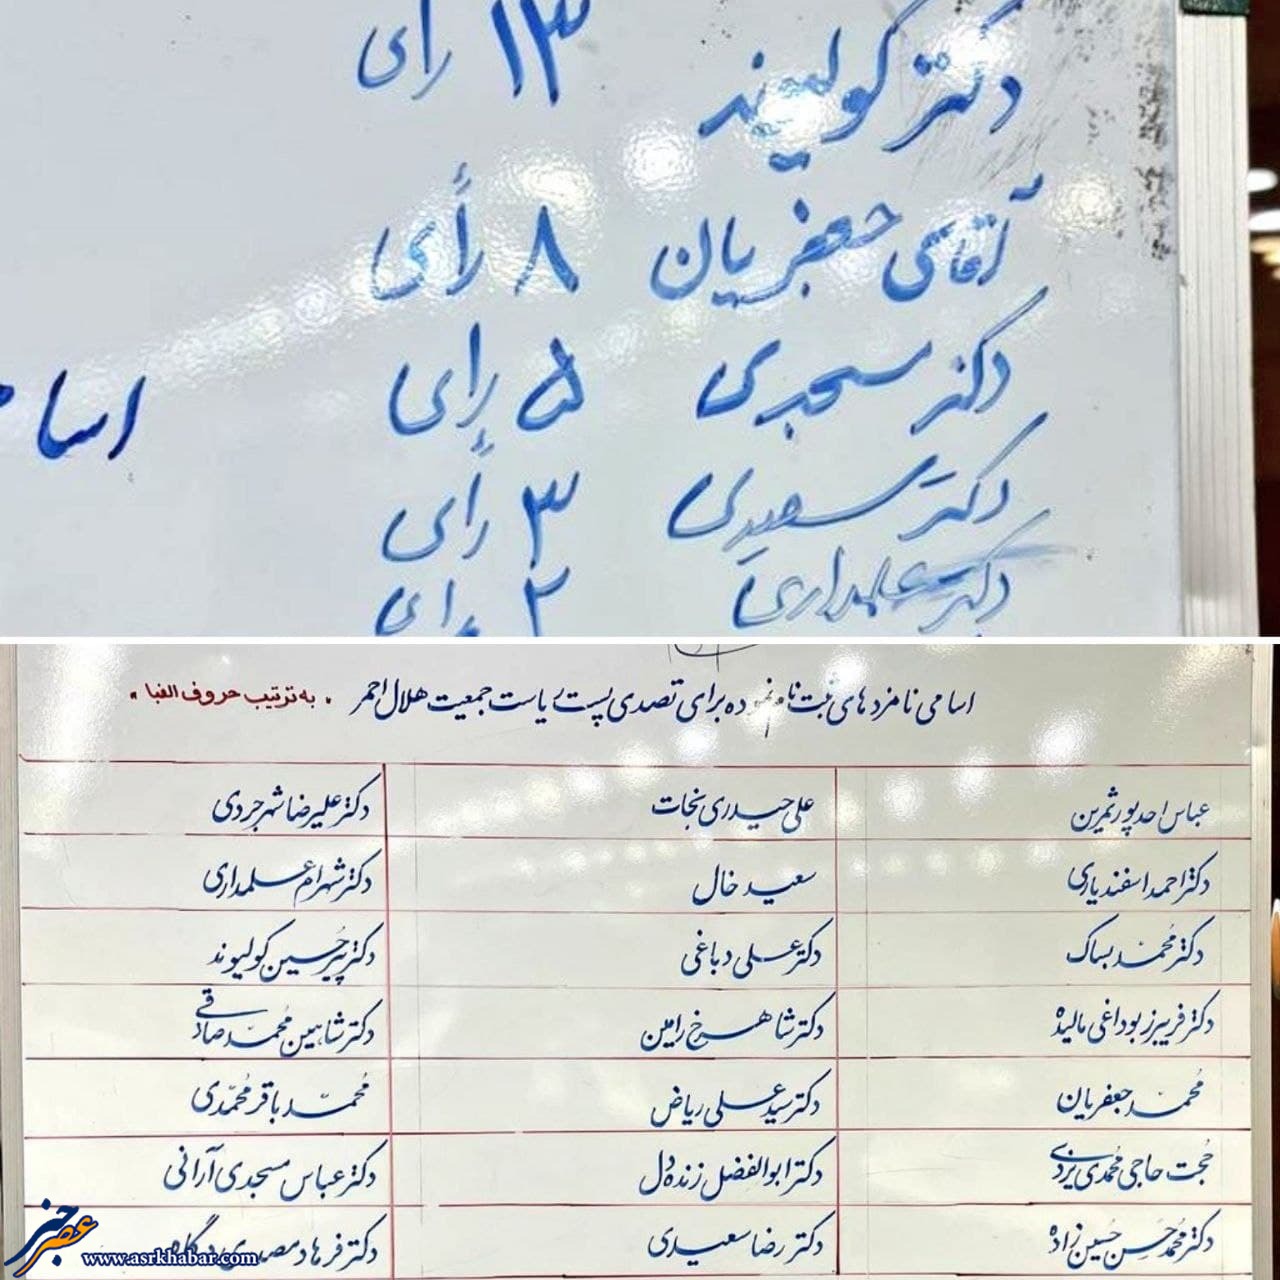 دکتر کولیوند ۱۳ رأی
آقای جعفریان ۸ رأی
دکتر مسجدی ۵ رأی
دکتر سعیدی ۳ رأی
دکتر علمداری ۲ رأی
اسا
اسامی نامزدهای ثبت نام برای تصدی پست ریاست جمعیت هلال احمر "به ترتیب حروف الفبا"
عباس احدپور ثمرین علی حیدری نجات دکتر علیرضا شهرجردی
دکتر احمد اسفندیاری سعید خال دکتر شهرام علمداری
دکتر محمد بساک دکتر علی دباغی دکتر پیرحسین کولیوند
دکتر فریبرز بوداغی مالیده دکتر شاهرخ رامین دکتر شاهین محمدصادقی
محمد جعفریان دکتر سیدعلی ریاض محمدباقر محمدی
حجت حاجی محمدی یزدی دکتر ابوالفضل زنده دل دکتر عباس مسجدی آرانی
دکتر محمدحسن حسین زاده دکتر رضا سعیدی دکتر فرهاد
عصر خبر
www.asrkhabar.com